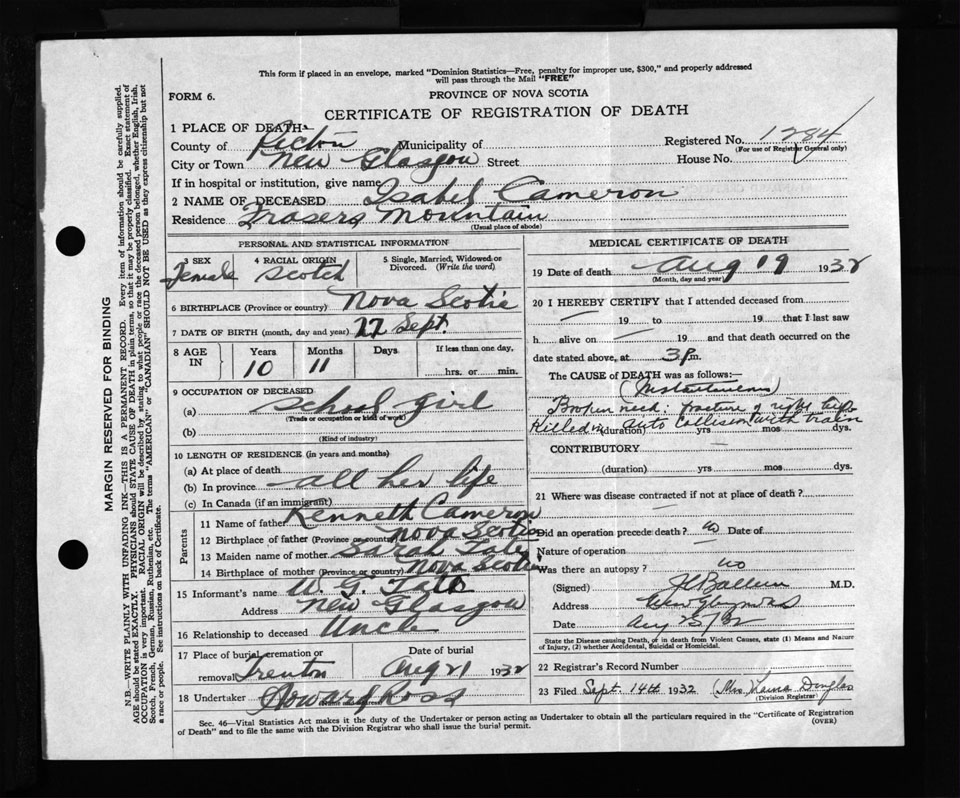 This form if placed in an envelope, marked "Dominion Statistics—Free, penalty for improper use, $300," and properly addressed
will pass through the Mail "FREE"
FORM 6.
PROVINCE OF NOVA SCOTIA
CERTIFICATE OF REGISTRATION OF DEATH
1 PLACE OF DEATH—
County of Pictou Municipality of Registered No. 1284
(For use of Registrar General only)
City or Town New Glasgow Street House No.
If in hospital or institution, give name
2 NAME OF DECEASED Isabel Cameron
Residence Frasers Mountain
(Usual place of abode)
PERSONAL AND STATISTICAL INFORMATION
3 SEX 4 RACIAL ORIGIN 5 Single, Married, Widowed or
Divorced. (Write the word)
Female Scotch
6 BIRTHPLACE (Province or country) Nova Scotia
7 DATE OF BIRTH (month, day and year) Sept.
8 AGE IN Years Months Days If less than one day,
10 11 hrs. or min.
9 OCCUPATION OF DECEASED
(a) School girl
(Trade or occupation or kind of work)
(b)
(Kind of industry)
10 LENGTH OF RESIDENCE (in years and months)
(a) At place of death
(b) In province all her life
(c) In Canada (if an immigrant)
Parents
11 Name of father Kenneth Cameron
12 Birthplace of father (Province or country) Nova Scotia
13 Maiden name of mother Sarah
14 Birthplace of mother (Province or country) Nova Scotia
15 Informant's name W. G.
Address New Glasgow
16 Relationship to deceased Uncle
17 Place of burial, cremation or Date of burial
removal Trenton Aug 21 1932
18 Undertaker Howard Ross
MEDICAL CERTIFICATE OF DEATH
19 Date of death Aug 19 1932
(Month, day and year)
20 I HEREBY CERTIFY that I attended deceased from
— 19 to 19 that I last saw
h alive on — 19 and that death occurred on the
date stated above, at 3 P.m.
The CAUSE of DEATH was as follows:—
(Instantaneous)
Broken neck: fracture of right
Killed in auto collision with train
(duration) yrs mos dys.
CONTRIBUTORY
(duration) yrs. mos. dys.
21 Where was disease contracted if not at place of death?
—
Did an operation precede death? no Date of
Nature of operation —
Was there an autopsy? no
(Signed) M.D.
Address
Date Aug
State the Disease causing Death, or in death from Violent Causes, state (1) Means and Nature
of Injury, (2) whether Accidental, Suicidal or Homicidal.
22 Registrar's Record Number
23 Filed Sept. 14th 1932 Mrs Douglas
(Division Registrar)
Sec. 46—Vital Statistics Act makes it the duty of the Undertaker or person acting as Undertaker to obtain all the particulars required in the "Certificate of Registration
of Death" and to file the same with the Division Registrar who shall issue the burial permit. (OVER)
MARGIN RESERVED FOR BINDING
N.B.—WRITE PLAINLY WITH UNFADING INK—THIS IS A PERMANENT RECORD. Every item of information should be carefully supplied.
AGE should be stated EXACTLY. PHYSICIANS should STATE CAUSE OF DEATH in plain terms, so that it may be properly classified. Exact statement of
OCCUPATION is very important. RACIAL ORIGIN will be described by stating to what people or race the deceased person belonged, whether English, Irish,
Scotch, French, German, Russian, Ruthenian, etc. The terms "AMERICAN" or "CANADIAN" SHOULD NOT BE USED as they express citizenship but not
a race or people. See instructions on back of Certificate.